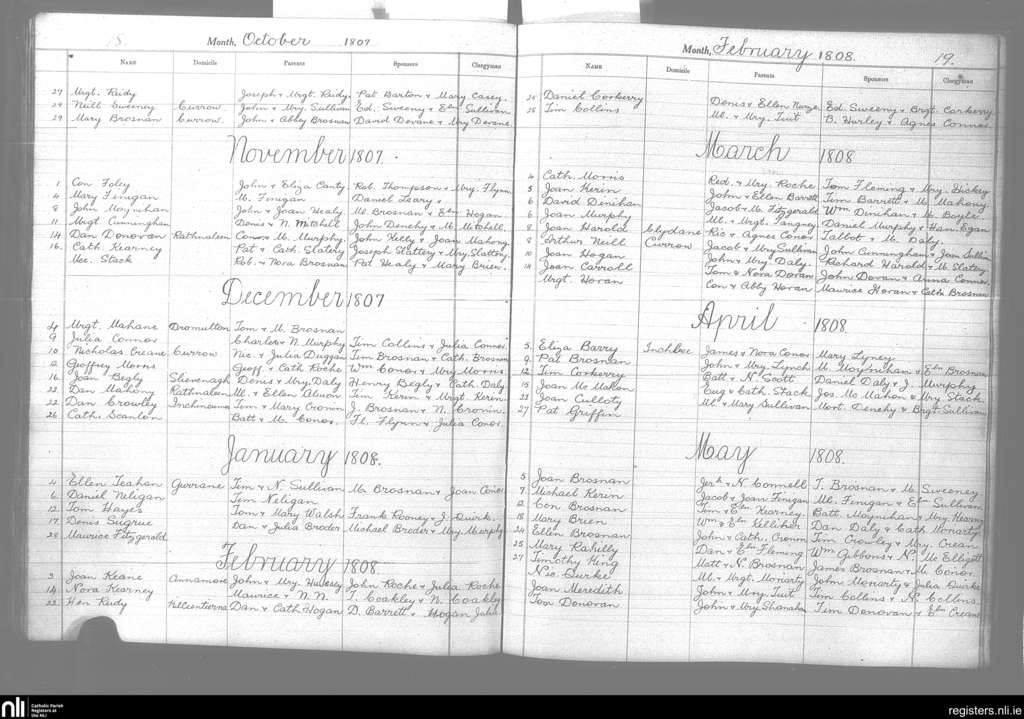 Month, October 1807
Name Domicile Parents Sponsors Clergyman
27 Mrgt. Reidy Joseph & Mrgt. Reidy Pat Barton & Mary Casey.
29 Neill Sweeney Currow. John & Mry. Sullivan Ed. Sweeney & Eln Sullivan
29 Mary Brosnan Currow. John & Abbey Brosnan David Devane & Mry Devane.
November 1807.
1 Con Foley John & Eliza Canty Rob. Thompson & Mry. Flynn
4 Mary Finigan M. Finigan Daniel Leary &
8 John Moynihan John & Joan Healy M. Brosnan & Eln Hogan
11 Mrgt Cunningham Denis & N. Mitchell John Denehy & M. Mitchell.
14 Dan Donovan Rathnaleen Conor & M. Murphy. John Kelly & Joan Mahony.
16. Cath. Kearney Pat & Cath. Slatery Joseph Slattery & Mry. Slattery.
Mec. Stack Rob. & Nora Brosnan Pat Healy & Mary Brien.
December 1807
4 Mrgt. Mahane Dromulton Tom & M. Brosnan
9 Julia Connor Charles & N. Murphy Tim Collins & Julia Connor
10 Nicholas Creane Currow Nic. & Julia Duggan Tim Brosnan & Cath. Brosnan
12 Geoffrey Morris Geoff & Cath Roche Wm Conor & Mry Morris
16 Joan Begly Slievenagh Denis & Mry. Daly Henry Begly & Cath. Daly
22 Dan Mahony Rathnaleen Ml. & Ellen Tim Kerin & Mrgt Kerin.
22 Dan Crowley Inchinouma Tom & Mary Cronin J. Brosnan & N. Cronin.
26 Cath. Scanlon Batt & M. Conor. Fl. Flynn & Julia Conor.
January 1808.
4 Ellen Teahan Gurrane Tim & N. Sullivan M. Brosnan & Joan Conor
6 Daniel Neligan Tim Neligan.
12 Tom Hayes Tom & Mary Walsh Frank Rooney & J. Quirk.
17. Denis Sugrue Dan & Julia Broder Michael Broder & Mry. Murphy
28 Maurice Fitzgerald
February 1808.
3 Joan Keane Annamore John & Mry. John Roche & Julia Roche
14 Nora Kearney Maurice & N. N. T. Coakley & N. Coakly
22 Hen Reidy Kilcuinterna Dan & Cath. Hogan D. Barrett & Hogan Julia
Month, February 1808. 19.
Name Domicile Parents Sponsors Clergyman
25 Daniel Corkerry Denis & Ellen Ed. Sweeny & Brgt. Carkerry
25 Tim Collins Ml. & Mry. Tuit B. Hurley & Agnes Connor
March 1808
4 Cath. Morris Red. & Mry. Roche Tom Fleming & Mry. Hickey
5 Joan Kerin John & Ellen Barrett Tim Barrett & M. Mahony
6 David Denihan Jacob & M. Fitzgerald Wm Denihan & M. Boyle.
6 Joan Murphy Ml. & Mrgt. Tangney Daniel Murphy & Han. Egan
8 Joan Harold Clydane Ric & Agnes Conor Talbot & M. Daly.
8 Arthur Neill Currow Jacob & Mry Sullivan John Cunningham & Joan Cullin
10 Joan Hogan John & Mry. Daly. Richard Harold & M. Slattery
18 Joan Carroll Tom & Nora Doran John Doran & Anna Connor.
Mrgt. Horan Con & Abby Horan Maurice Horan & Cath. Brosnan
April 1808.
5. Eliza Barry Inchbee James & Nora Conor Mary Lyney.
9 Pat Brosnan John & Mry. Lynch M. Moynihan & Eln Brosnan
12 Tim Corkerry Batt & N. Scott Daniel Daly & J. Murphy
15 Joan McMahon Eug & Cath. Stack Jos. McMahon & Mry Stack.
22 Joan Culloty Ml & Mary Sullivan Mort. Denehy & Brgt Sullivan
27 Pat Griffin
May 1808.
5 Joan Brosnan Jerh & N. Connell T. Brosnan & M. Sweeney
7. Michael Kerin Jacob & Joan Finigan Ml. Finigan & Eln Sullivan
12 Con Brosnan Tim & Eln Kearney. Batt. Moynihan & Mry. Kearny
18 Mary Brien Wm & Eln Kelliher Dan Daly & Cath Moriarty
24 Ellen Brosnan John & Cath. Cronin Tim Crowley & Mry. Crean
25 Mary Rahelly Dan & Eln Fleming Wm Gibbons & N. McElligott
27 Timothy King Matt & N. Brosnan James Brosnan & M. Conor.
Nic Burke Ml & Mrgt. Moriarty John Moriarty & Julia Quirke
Joan Meredith John & Mry. Tuit Tim Collins & N. Collins.
Tom Donovan John & Mry Shanahan Tim Donovan & Eln Crean
nli
Catholic Parish
Registers at
the NLI
registers.nli.ie